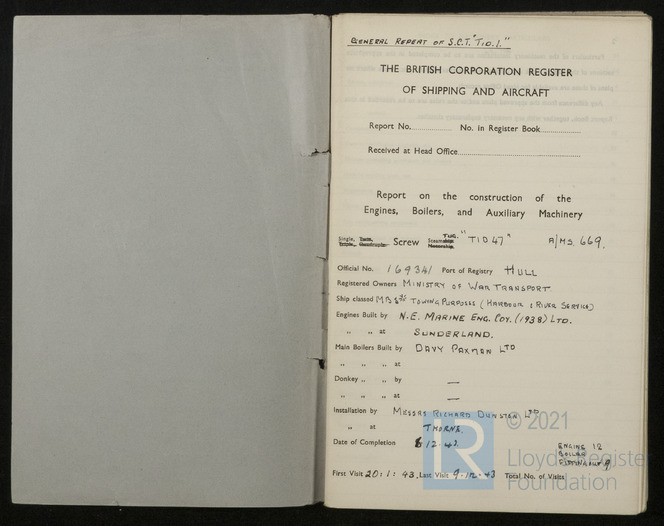 GENERAL REPEAT OF S.C.T. "TID.1."
THE BRITISH CORPORATION REGISTER
OF SHIPPING AND AIRCRAFT
Report No. No. in Register Book
Received at Head Office
Report on the construction of the
Engines, Boilers, and Auxiliary Machinery
Single, Twin, Triple, Quadruple Screw Steamship Motorship TUG. "TID 47" A/MS. 669.
Official No. 169341 Port of Registry HULL
Registered Owners MINISTRY OF WAR TRANSPORT
Ship classed MBS* TOWING PURPOSES (HARBOUR & RIVER SERVICE)
Engines Built by N.E. MARINE ENG. COY. (1938) LTD.
" " at SUNDERLAND.
Main Boilers Built by DAVY PAXMAN LTD
" " at
Donkey " by —
" " at —
Installation by MESSRS RICHARD DUNSTAN LTD
" at THORNE.
Date of Completion 8 12. 43.
ENGINE 12
BOILER
FITTING OUT 9.
First Visit 20:1:43. Last Visit 9.12.43 Total No. of Visits
LR © 2021
Lloyd's Register
Foundation